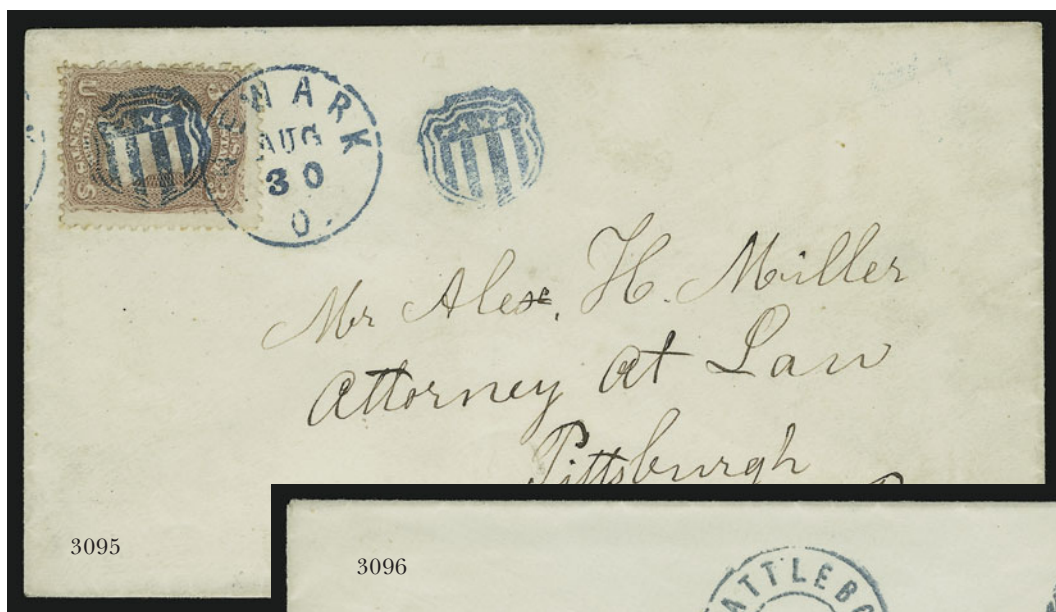 NEWARK
AUG
30
O.
Mr Alex. H. Miller
Attorney At Law
Pittsburgh
3095
3096